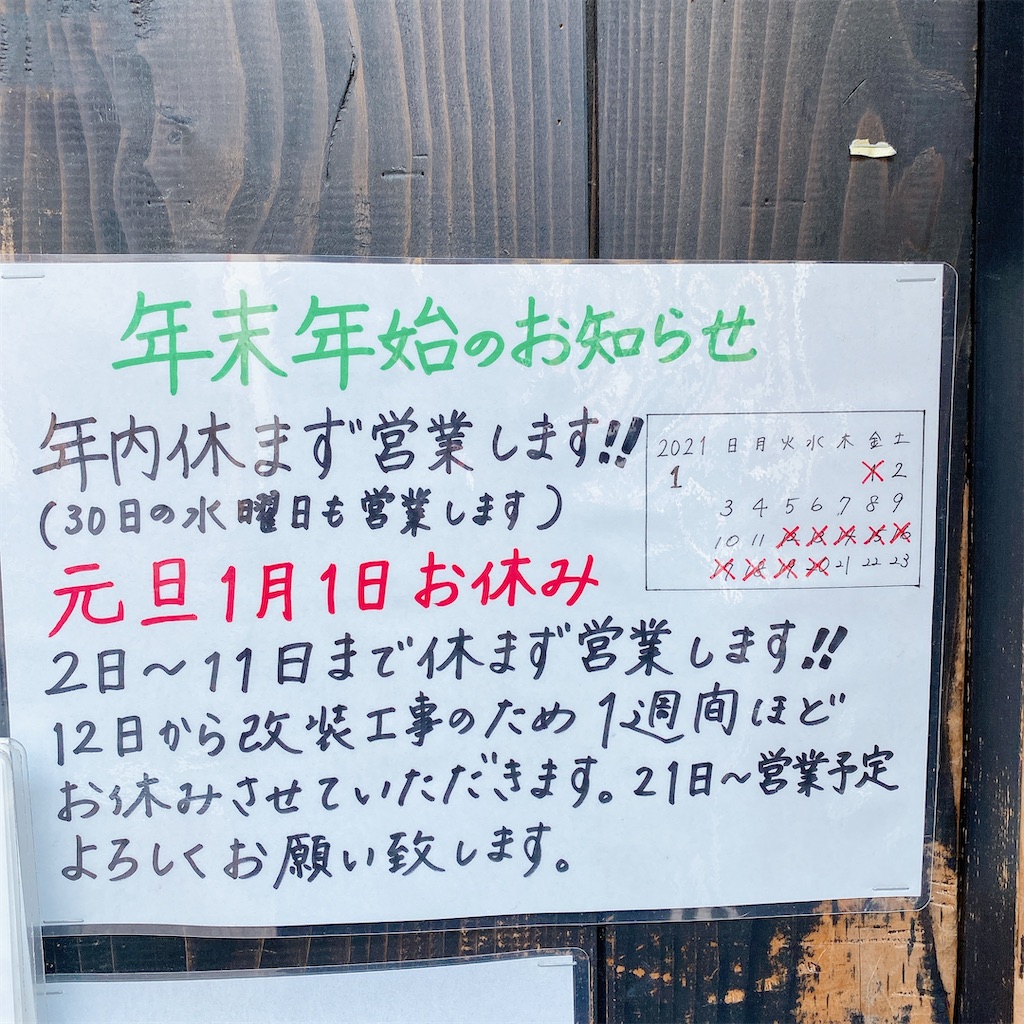 年末年始のお知らせ
年内休まず営業します!!
(30日の水曜日も営業します)
元旦1月1日お休み
2日～11日まで休まず営業します!!
12日から改装工事のため1週間ほど
お休みさせていただきます。21日～営業予定
よろしくお願い致します。
2021 日 月 火 水 木 金 土
1 1 2
3 4 5 6 7 8 9
10 11 12 13 14 15 16
17 18 19 20 21 22 23